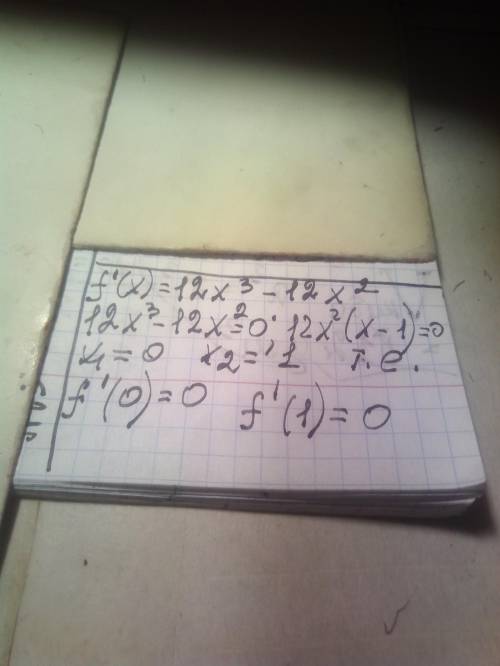 f'(x) = 12x³ - 12x²
12x³ - 12x² = 0; 12x²(x - 1) = 0
x₁ = 0 x₂ = 1 т.е.
f'(0) = 0 f'(1) = 0